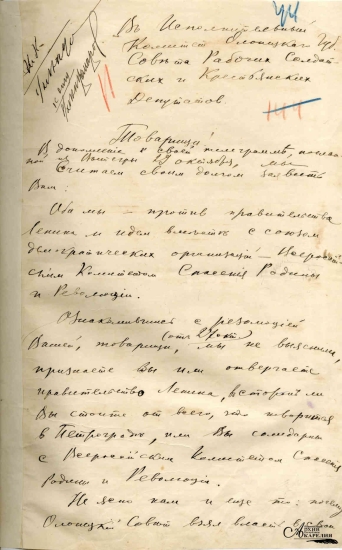 Въ Исполнительный
Комитет Олонецкаго Губ.
Совѣта Рабочих Солдат-
ских и Крестьянских
Депутатов
Товарищи!
В дополнение к своей телеграммѣ, послан-
ной из Вытегры октября, мы
считаем своим долгом заявить
Вам:
Оба мы — против правительства
Ленина и идем вмѣстѣ с союзом
демократических организацій — Всероссій-
ским Комитетом Спасения Родины
и Революции.
Ознакомившись с резолюціей
Вашей, товарищи, мы не выяснили,
признаете вы или отвергаете
правительство Ленина, в сторонѣ ли
Вы стоите от всего, что творится
в Петроградѣ, или Вы солидарны
с Всероссийским Комитетом Спасения
Родины и Революции.
Не ясно нам и еще то: почему
Олонецкий Совѣт взял власть в свои
АРХИВ
КАРЕЛИИ